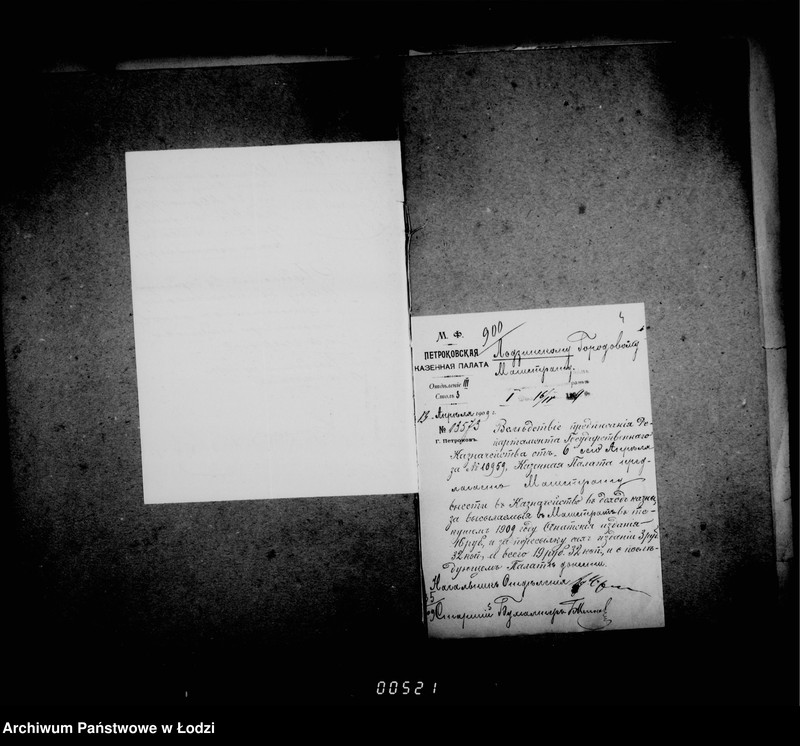 М. Ф.
900
4
ПЕТРОКОВСКАЯ
КАЗЕННАЯ ПАЛАТА
Лодзинскому Городовому
Магистрату.
Отдѣленіе III
Столъ 3
I 16/IV
Апрѣля 1909 г.
№ 13573
г. Петроковъ.
Вслѣдствіе предписанія Де-
партамента Государственнаго
Казначейства отъ 6 сего Апрѣля
за № 10959, Казенная Палата пред-
лагаетъ Магистрату
внести въ Казначейство въ доходъ казны
за высылаемыя въ Магистратъ въ те-
кущемъ 1909 году Сенатскія изданія
16 руб. и за пересылку сихъ изданій 3 руб.
32 коп., а всего 19 руб. 32 коп., и о послѣ-
дующемъ Палатѣ донести.
Начальникъ Отдѣленія
Старшій Бухгалтеръ
00521
Archiwum Państwowe w Łodzi